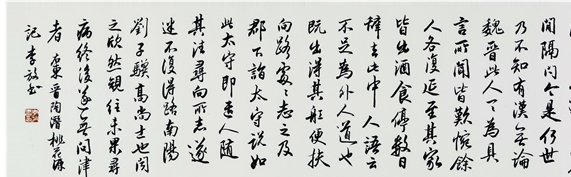 間隔問今是何世
乃不知有漢無論
魏晉此人一一為具
言所聞皆歎惋餘
人各復延至其家
皆出酒食停數日
辭去此中人語云
不足為外人道也
既出得其船便扶
向路處處志之及
郡下詣太守說如
此太守即遣人隨
其往尋向所志遂
迷不復得路南陽
劉子驥高尚士也聞
之欣然規往未果尋
病終後遂無問津
者 東晉陶潛桃花源
記 李書